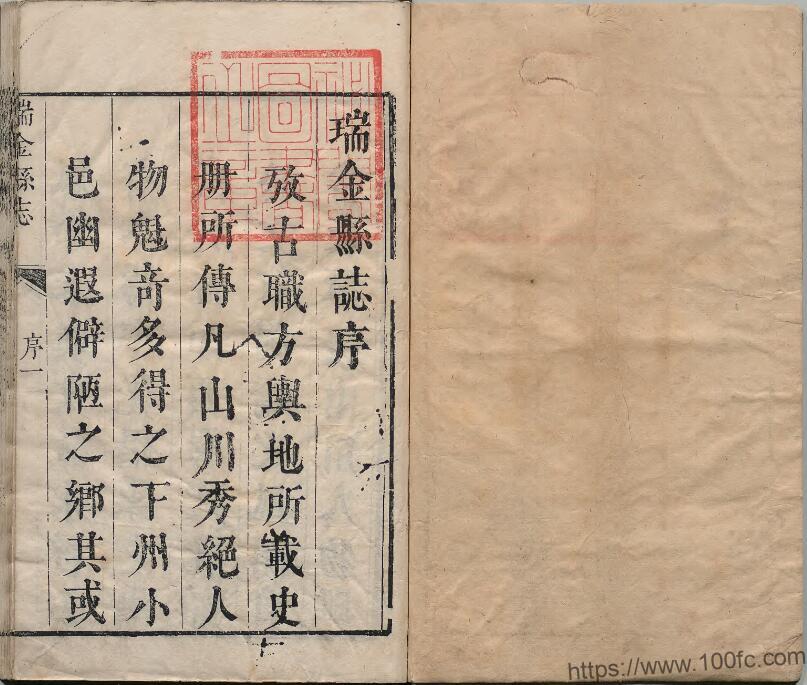 瑞金縣誌序
攷古職方輿地所載史
册所傳凡山川秀絕人
物魁竒多得之下州小
邑幽遐僻陋之鄉其或
瑞金縣志
序一
https://www.100fc.com